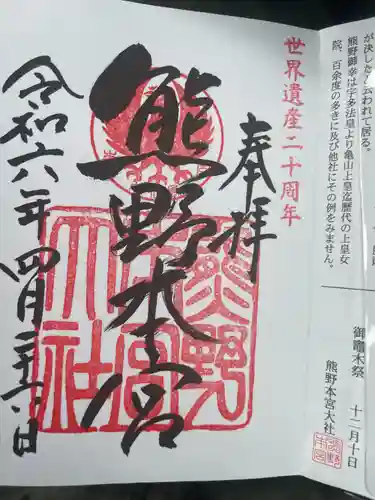 が決した
われて居る。
熊野御幸は宇多法皇より亀山上皇迄歴代の上皇女
院、百余度の多きに及び他社にその例をみません。
御竈木祭 十二月十日
熊野本宮大社
世界遺産二十周年
奉拝
熊野本宮
令和六年四月二十六日